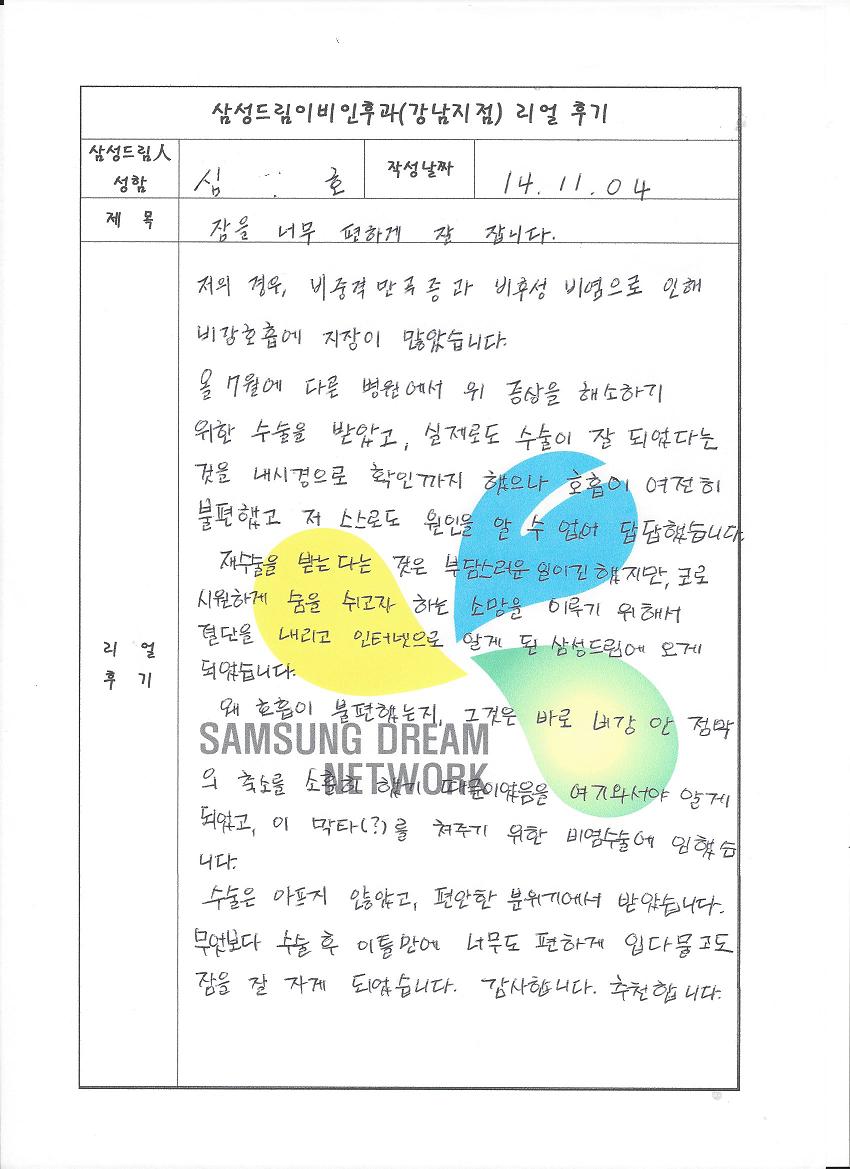 삼성드림이비인후과(강남지점) 리얼 후기
삼성드림人
성함
심 호
작성날짜
14.11.04
제 목
잠을 너무 편하게 잘 잡니다.
저의 경우, 비중격만곡증과 비후성 비염으로 인해
비강호흡에 지장이 많았습니다.
올 7월에 다른 병원에서 위 증상을 해소하기
위한 수술을 받았고, 실제로도 수술이 잘 되었다는
것을 내시경으로 확인까지 했으나 호흡이 여전히
불편했고 저 스스로도 원인을 알 수 없어 답답했습니다.
재수술을 받는다는 것은 부담스러운 일이긴 했지만, 코로
시원하게 숨을 쉬고자 하는 소망을 이루기 위해서
결단을 내리고 인터넷으로 알게 된 삼성드림에 오게
되었습니다.
리 얼
후 기
왜 호흡이 불편했는지, 그것은 바로 비강 안 점막
SAMSUNG DREAM
NETWORK
의 축소를 소홀히 했기 때문이었음을 여기와서야 알게
되었고, 이 막타(?)를 쳐주기 위한 비염수술에 임했습
니다.
수술은 아프지 않았고, 편안한 분위기에서 받았습니다.
무엇보다 수술 후 이틀만에 너무도 편하게 입다물고도
잠을 잘 자게 되었습니다. 감사합니다. 추천합니다.